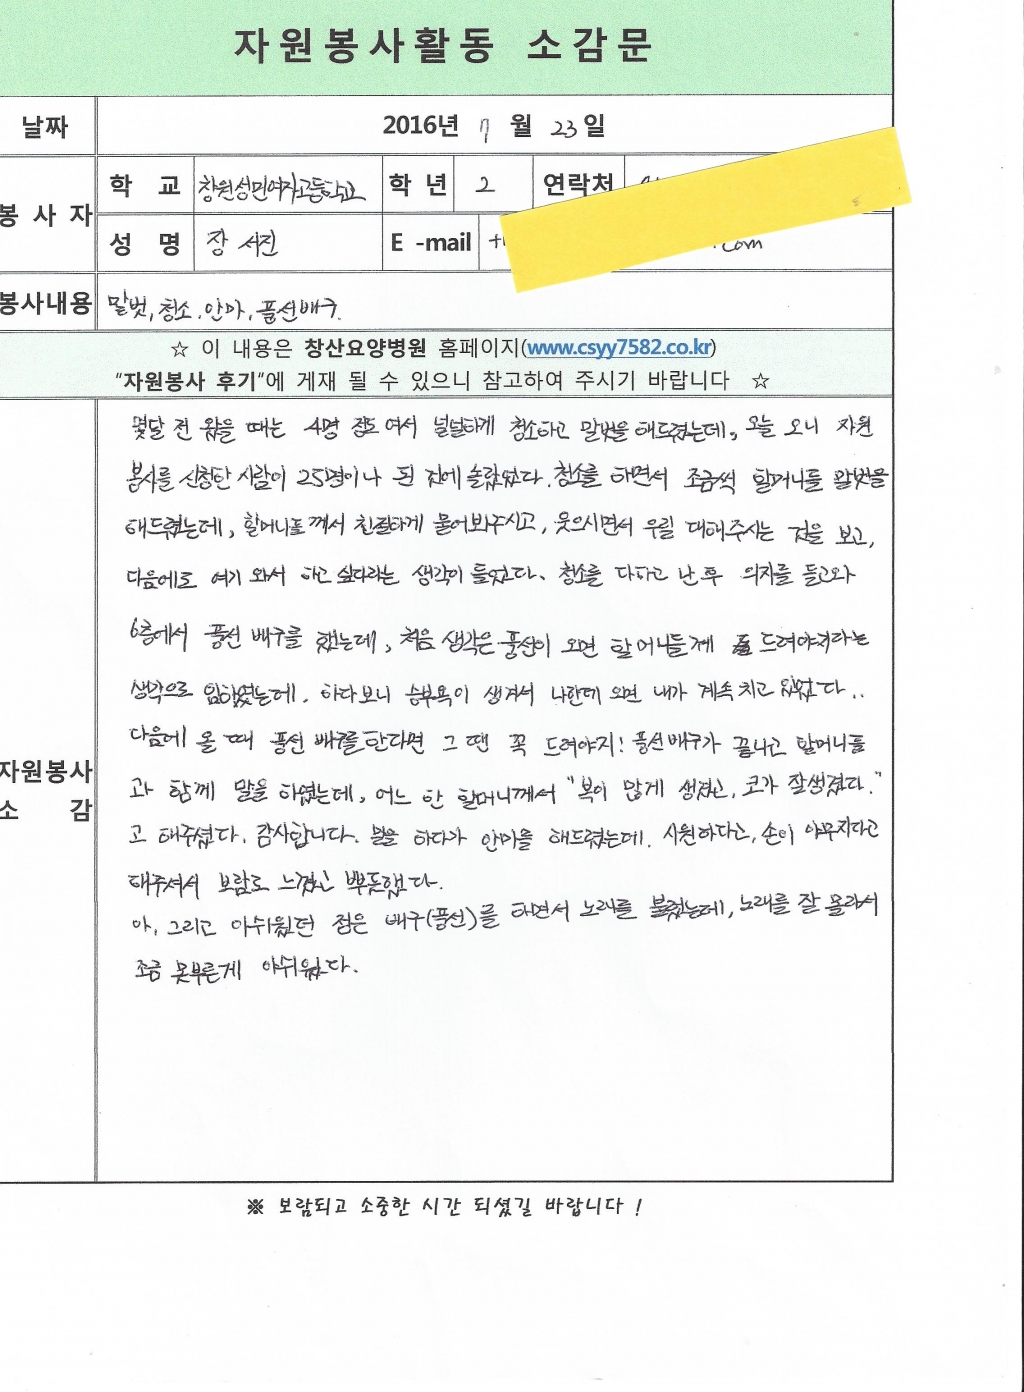 자원봉사활동 소감문
날짜 2016년 7월 23일
봉사자 학 교 창원성민여자고등학교 학 년 2 연락처
성 명 장 서진 E -mail .com
봉사내용 말벗, 청소. 안마. 풍선배구.
☆ 이 내용은 창산요양병원 홈페이지(www.csyy7582.co.kr)
"자원봉사 후기"에 게재 될 수 있으니 참고하여 주시기 바랍니다 ☆
자원봉사 소 감
몇달 전 왔을 때는 4명 정도 여서 널널하게 청소하고 말벗을 해드렸는데, 오늘 오니 자원
봉사를 신청한 사람이 25명이나 된 것에 놀랐었다. 청소를 하면서 조금씩 할머니들 말벗을
해드렸는데, 할머니도 께서 친절하게 물어봐주시고, 웃으시면서 우릴 대해주시는 것을 보고,
다음에도 여기 와서 하고 싶다라는 생각이 들었다. 청소를 다하고 난 후 의자를 들고와
6층에서 풍선 배구를 했는데, 처음 생각은 풍선이 오면 할머니들께 드려야지라는
생각으로 임하였는데. 하다보니 승부욕이 생겨서 나한테 오면 내가 계속 치고 있었다..
다음에 올 때 풍선 배구를 한다면 그 땐 꼭 드려야지! 풍선배구가 끝나고 할머니들
과 함께 말을 하였는데, 어느 한 할머니께서 "복이 많게 생겼고, 코가 잘생겼다."
고 해주셨다. 감사합니다. 말을 하다가 안마를 해드렸는데. 시원하다고, 손이 야무지다고
해주셔서 보람도 느겼고 뿌듯했다.
아, 그리고 아쉬웠던 점은 배구(풍선)를 하면서 노래를 불렀는데, 노래를 잘 몰라서
조금 못부른게 아쉬웠다.
※ 보람되고 소중한 시간 되셨길 바랍니다 !